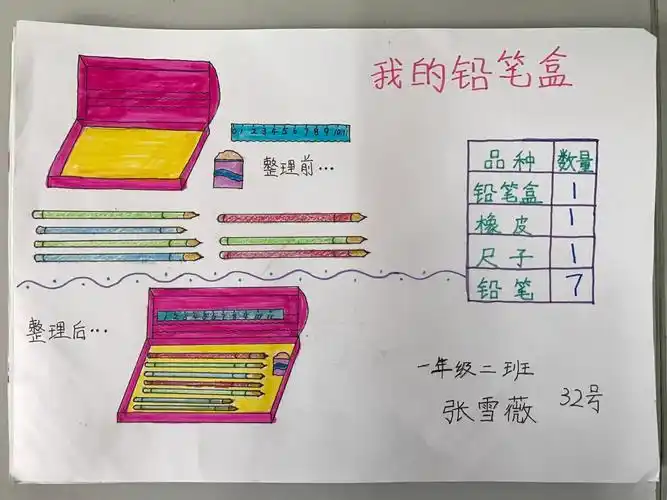 我的铅笔盒
0 1 2 3 4 5 6 7 8 9 10
整理前…
品种 数量
铅笔盒 1
橡皮 1
尺子 1
铅笔 7
整理后…
一年级二班
张雪薇 32号